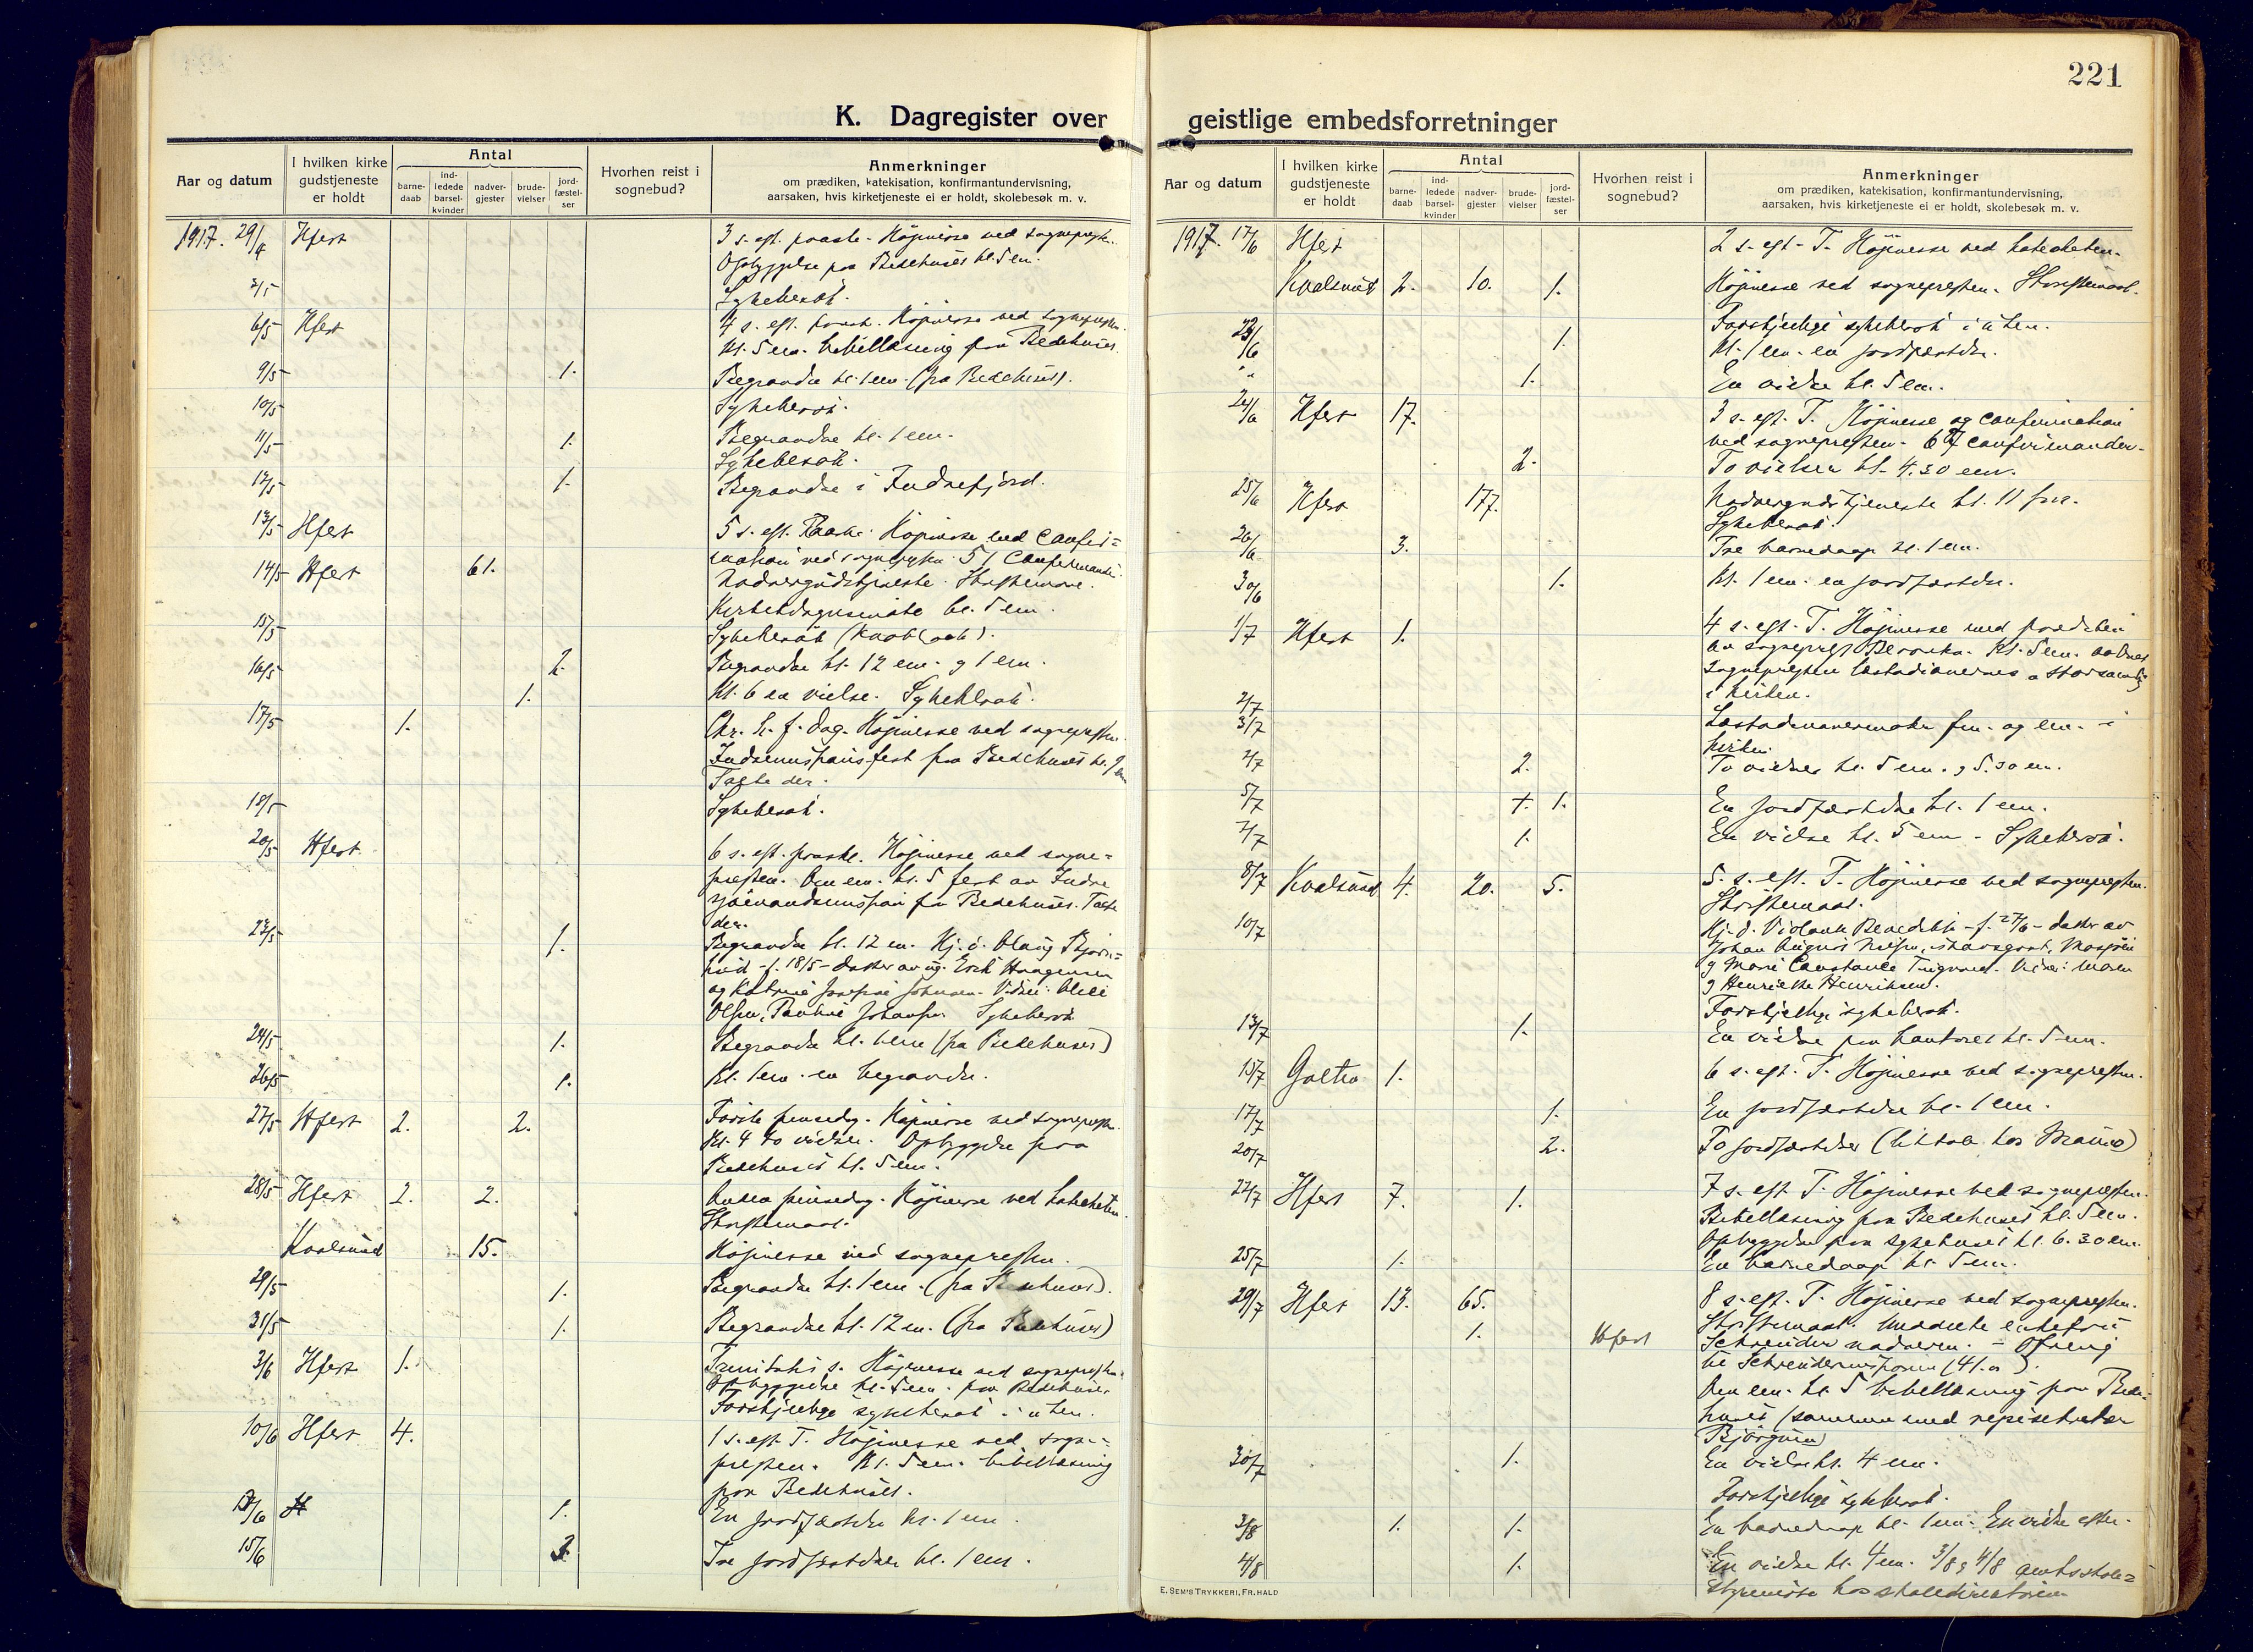 221
K. Dagregister over
geistlige embedsforretninger
Aar og datum
I hvilken kirke gudstjeneste er holdt
Antal
barne-daab
ind-ledede barsel-kvinder
nadver-gjester
brude-vielser
jord-fæstel-ser
Hvorhen reist i sognebud?
Anmerkninger
om prædiken, katekisation, konfirmantundervisning,
aarsaken, hvis kirketjeneste ei er holdt, skolebesøk m. v.
1917. 29/4 Hfest 3 s. eft. paaske - Højmesse ved sognepresten.
Opbyggelse paa Bedehuset kl. 5 em.
2/5 Sykebesøk.
6/5 Hfest 4 s. eft. paask. Højmesse ved sognepresten.
Kl. 5 em. bibellæsning paa Bedehuset.
9/5 1. Begravelse kl. 1 em. (fra Bedehuset).
10/5 Sykebesøk.
11/5 1. Begravelse kl. 1 em.
Sykebesøk.
12/5 1. Begravelse i Indrefjord.
13/5 Hfest 5 s. eft. Paaske. Højmesse med confir=
mation ved sognepresten. 51 confirmanter.
14/5 Hfest 61. Nadvergudstjeneste. Skriftemaal.
kl. 5 em.
15/5 Sykebesøk
16/5 2. Begravelse kl. 12 em. g 1 em.
1. Kl. 6 en vielse. Sykebesøk.
17/5 1. Chr. h. f. dag. Højmesse ved sognepresten.
Indremissionsfest paa Bedehuset kl.
Talte der.
18/5 Sykebesøk.
20/5 Hfest 6 s. eft. paaske. Højmesse ved sogne=
presten. Om em. kl. 5 fest av Indre
sjømandsmission paa Bedehuset. Talte
der.
23/5 1. Begravelse kl. 12 em. Hj. d.
f. 18/5 - datter av ug. Erik Haagensen
og Johansen.
Olsen, Johansen. Sykebesøk
24/5 1. Begravelse kl. 1 em (fra Bedehuset)
26/5 1. Kl. 1 em. en begravelse.
27/5 Hfest 2. 2. Første pinsedag. Højmesse ved sognepresten.
Kl. 4 to vielser. Opbyggelse paa
Bedehuset kl. 5 em.
28/5 Hfest 2. 2. Anden pinsedag. Højmesse ved kateketen.
Skriftemaal.
Kvalsund 15. Højmesse ved sognepresten.
29/5 1. Begravelse kl. 1 em. (fra Bedehuset).
31/5 1. Begravelse kl. 12 em. (fra Bedehuset)
3/6 Hfest 1. Trinitatis s. Højmesse ved sognepresten.
Opbyggelse kl. 5 em. paa Bedehuset
Forskjellige sykebesøk i uken.
10/6 Hfest 4. 1 s. eft. T. Højmesse ved sogne=
presten. Kl. 5 em. bibellæsning
paa Bedehuset.
13/6 H 1. En jordfæstelse kl. 1 em.
15/6 3. Tre jordfæstelser kl. 1 em.
Aar og datum
I hvilken kirke gudstjeneste er holdt
Antal
barne-daab
ind-ledede barsel-kvinder
nadver-gjester
brude-vielser
jord-fæstel-ser
Hvorhen reist i sognebud?
Anmerkninger
om prædiken, katekisation, konfirmantundervisning,
aarsaken, hvis kirketjeneste ei er holdt, skolebesøk m. v.
1917. 17/6 Hfest 2 s. eft. T. Højmesse ved kateketen.
Kvalsund 2. 10. 1. Højmesse ved sognepresten. Skriftemaal.
Forskjellige sykebesøk i uken.
1. Kl. 1 em. en jordfæstelse.
" 1. En vielse kl. 5 em.
24/6 Hfest 17. 3 s. eft. T. Højmesse og confirmation
ved sognepresten. 67 confirmander.
2. To vielser kl. 4.30 em.
25/6 Hfest 177. Nadvergudstjeneste kl. 11 fm.
Sykebesøk.
26/6 3. Tre barnedaap kl. 1 em.
30/6 1. Kl. 1 em. en jordfæstelse.
1/7 Hfest 1. 4 s. eft. T. Højmesse med prædiken
av sogneprest Beronka. Kl. 5 em.
sognepresten læstadianernes storsamling
i kirken.
2/7
3/7 Læstadianermøte fm. og em. i
kirken.
4/7 2. To vielser kl. 5 em. g 5.30 em.
5/7 1. En jordfæstelse kl. 1 em.
7/7 1. En vielse kl. 5 em - Sykebesøk.
8/7 Kvalsund 4. 20. 5. 5. s. eft. T. Højmesse ved sognepresten.
Skriftemaal.
10/7 Hj. d. Benedikte - f. 27/6 - datter av
Johan August
g Marie Constance
g Henriette Henriksen.
Forskjellige sykebesøk.
13/7 1. En vielse paa kontoret kl. 5 em.
15/7 Goltro 1. 6 s. eft. T. Højmesse ved sognepresten.
17/7 1. En jordfæstelse kl. 1 em.
20/7 2. To jordfæstelser
22/7 Hfest 7. 1. 7 s. eft. T. Højmesse ved sognepresten.
Bibellæsning paa Bedehuset kl. 5 em.
Opbyggelse paa sykehuset kl. 6.30 em.
25/7 1. En barnedaap kl. 5 em.
29/7 Hfest 13. 65. 8 s. eft. T. Højmesse ved sognepresten.
Skriftemaal. Meddelte enkefru
1. Hfest Schreuder nadveren.
Schreudermissionen (41.
Om em. kl. 5 bibellæsning paa Bede=
huset (sammen med reisesekretær
Bjørgum)
30/7 1. En vielse kl. 4 em.
Forskjellige sykebesøk.
3/8 1. 1. En barnedaap kl. 1 em. En vielse efter.
4/8 1. En vielse kl. 4 em. 3/8 g 4/8 amtsskole=
styremøte hos skoledirektøren
E. SEM'S TRYKKERI, FR.HALD